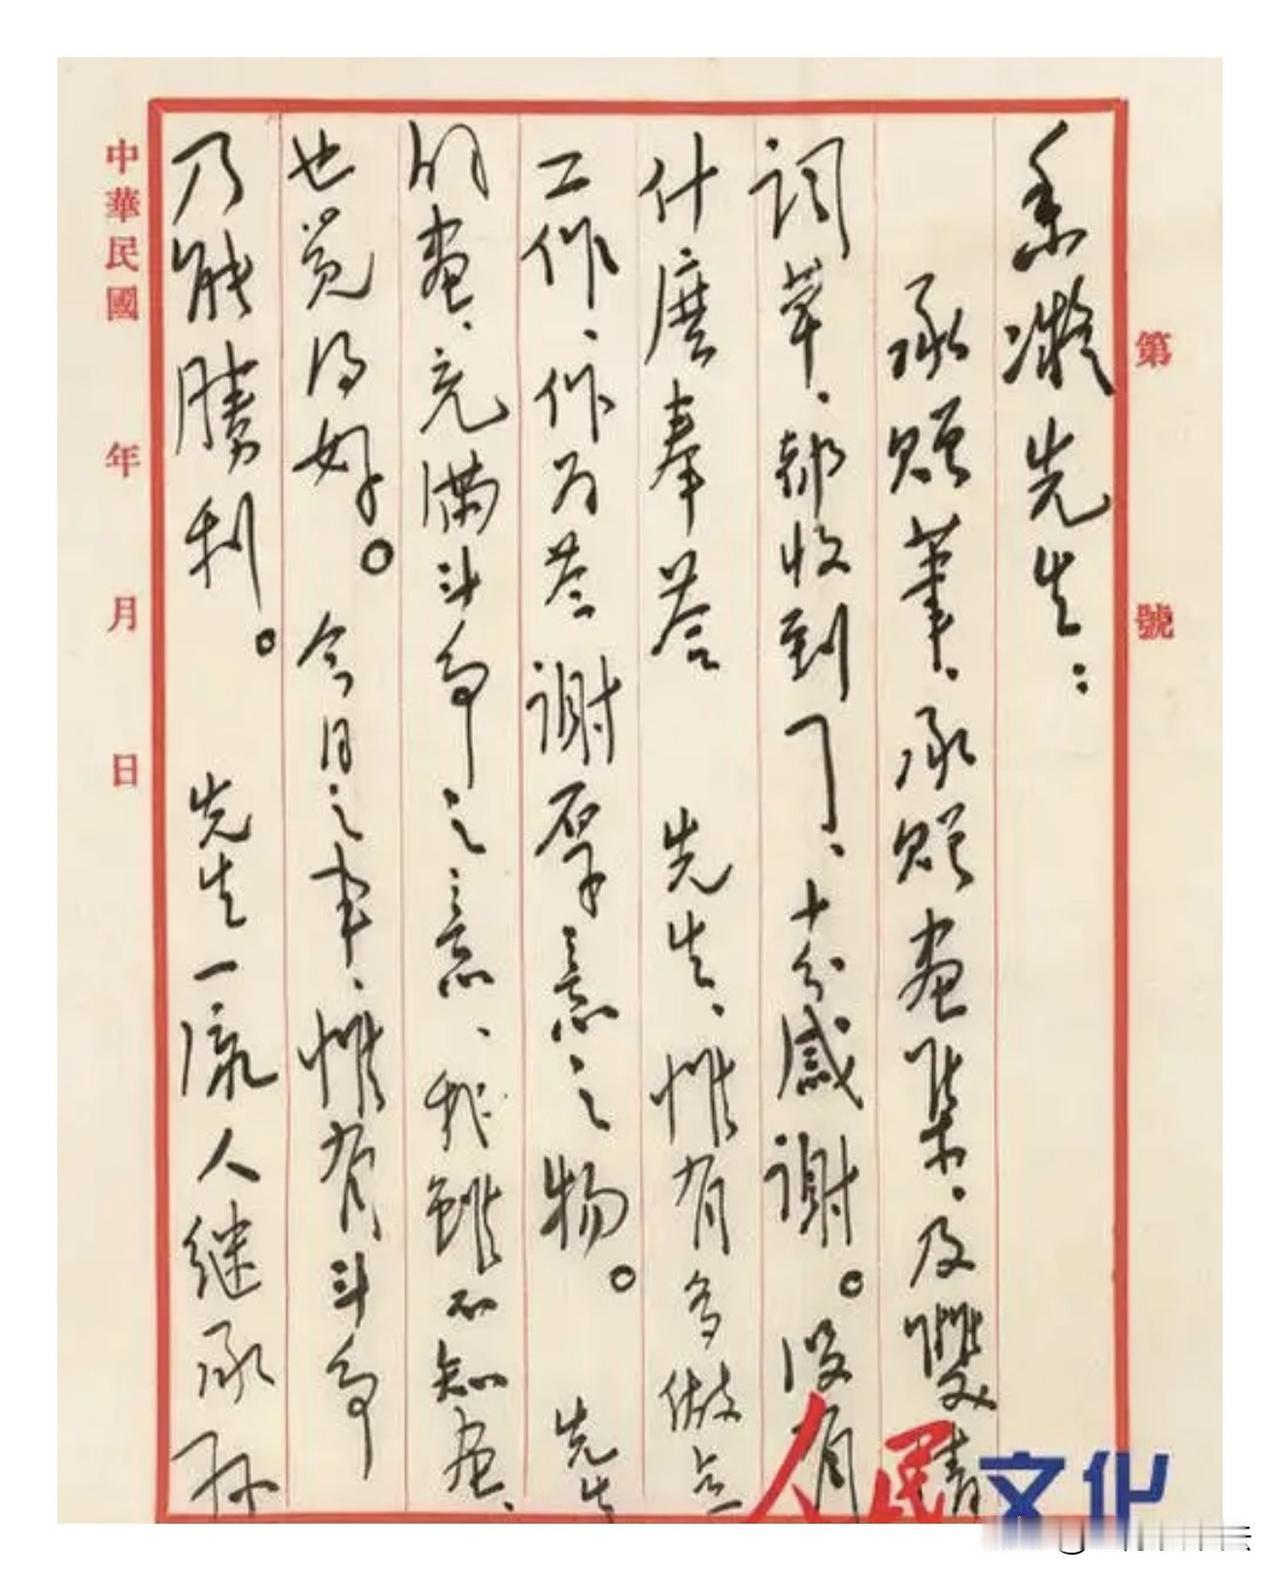 第 號
香凝先生：
承贈筆、承贈畫集、及雙清
詞草、都收到了、十分感謝。没有
什麼奉答先生、惟有多做点
工作、作为答謝厚意之物。先生
的畫、充滿斗争之意、我雖不知畫、
也觉得好。今日之事、惟有斗争
乃能勝利。先生一流人继承孙
中華民國 年 月 日
人民文化